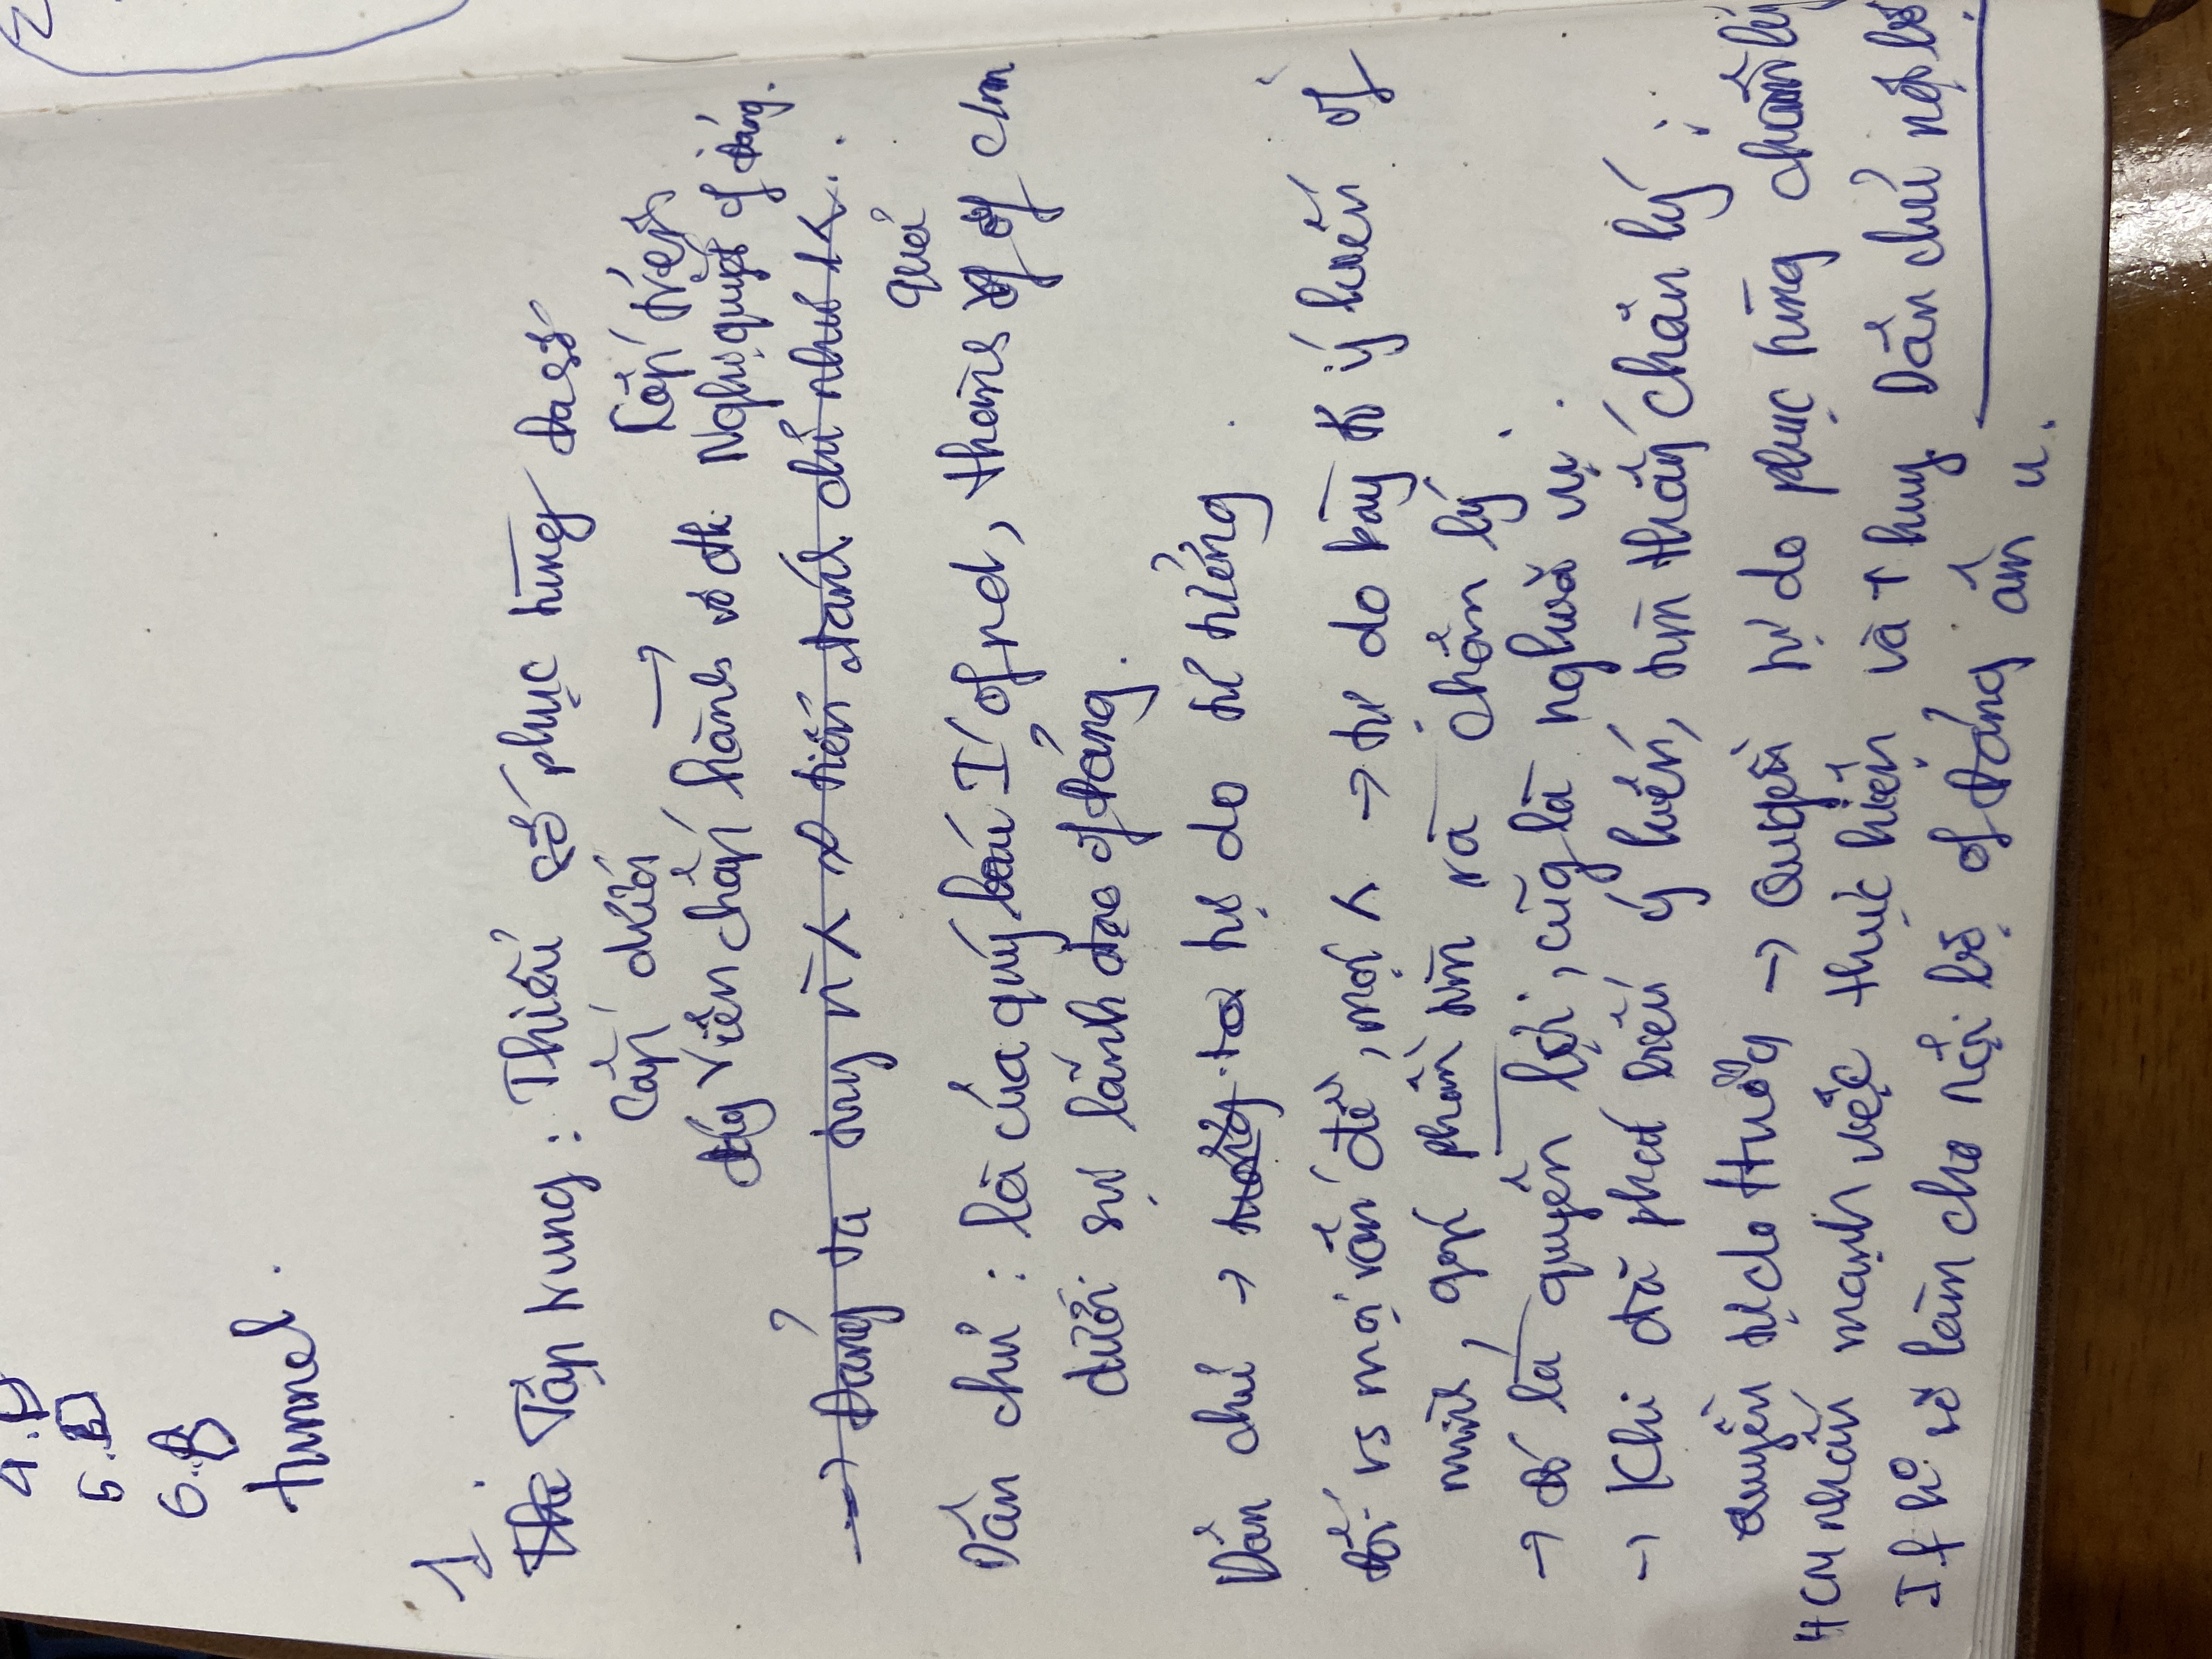 4. D
5. B
6. B
tunnel.
1.
The Tập trung : Thiểu số phục tùng đa số
Cấp dưới → Cấp trên
đảg viên chấp hành vô đk Nghị quyết of Đảng.
→ Đảng ta tuy n tiến đánh chỉ như 1
quả
Dân chủ : là của quý báu I' of nd, thành of of c/m
dưới sự lãnh đạo of Đảng.
Dân chủ → tưởng ta tự do tư tưởng.
Đối vs mọi vấn đề, mọi → tự do bày tỏ ý kiến of
mình, góp phần tìm ra chân lý.
→ đó là quyền lợi, cũg là nghĩa vụ.
→ Khi đã phát biểu ý kiến, tìm thấy chân lý :
Quyền tự do tưởng → Quyền tự do phục tùng chân lý
HCM nhấn mạnh việc thực hiện và huy Dân chủ nội bộ
If k° sẽ làm cho nội bộ of Đảng âm u.